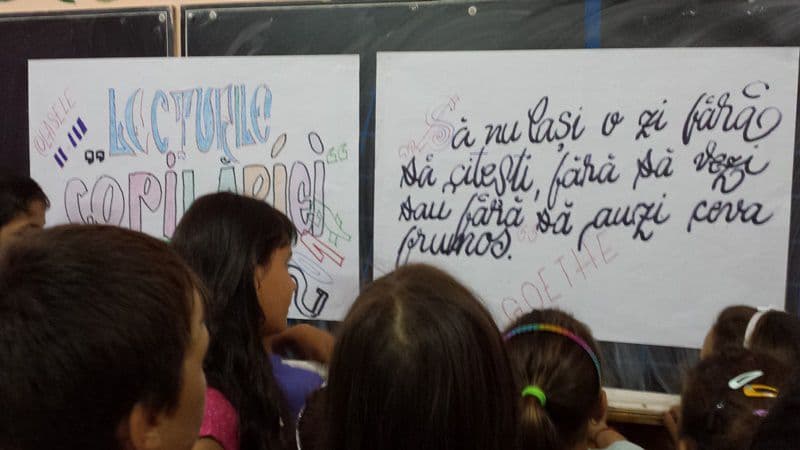 CLASELE
II III
„LECTURILE
COPILĂRIEI"
Să nu lași o zi fără
să citești, fără să vezi
sau fără să auzi ceva
frumos.
GOETHE